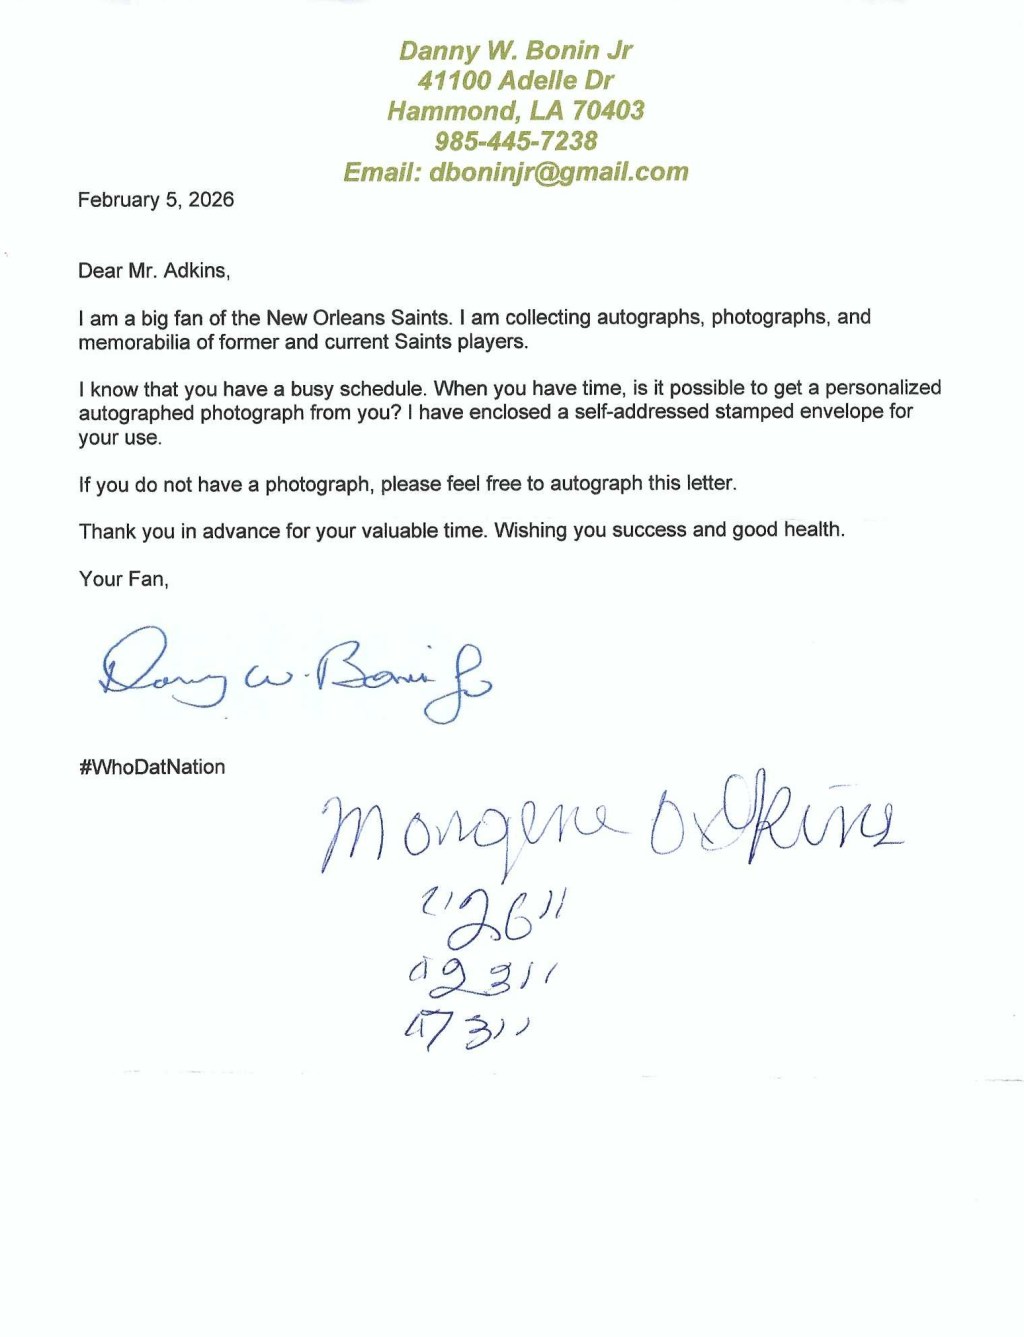 Danny W. Bonin Jr
41100 Adelle Dr
Hammond, LA 70403
985-445-7238
Email: dboninjr@gmail.com
February 5, 2026
Dear Mr. Adkins,
I am a big fan of the New Orleans Saints. I am collecting autographs, photographs, and
memorabilia of former and current Saints players.
I know that you have a busy schedule. When you have time, is it possible to get a personalized
autographed photograph from you? I have enclosed a self-addressed stamped envelope for
your use.
If you do not have a photograph, please feel free to autograph this letter.
Thank you in advance for your valuable time. Wishing you success and good health.
Your Fan,
Danny W. Bonin Jr
#WhoDatNation
Adkins
"26"
"23"
"73"